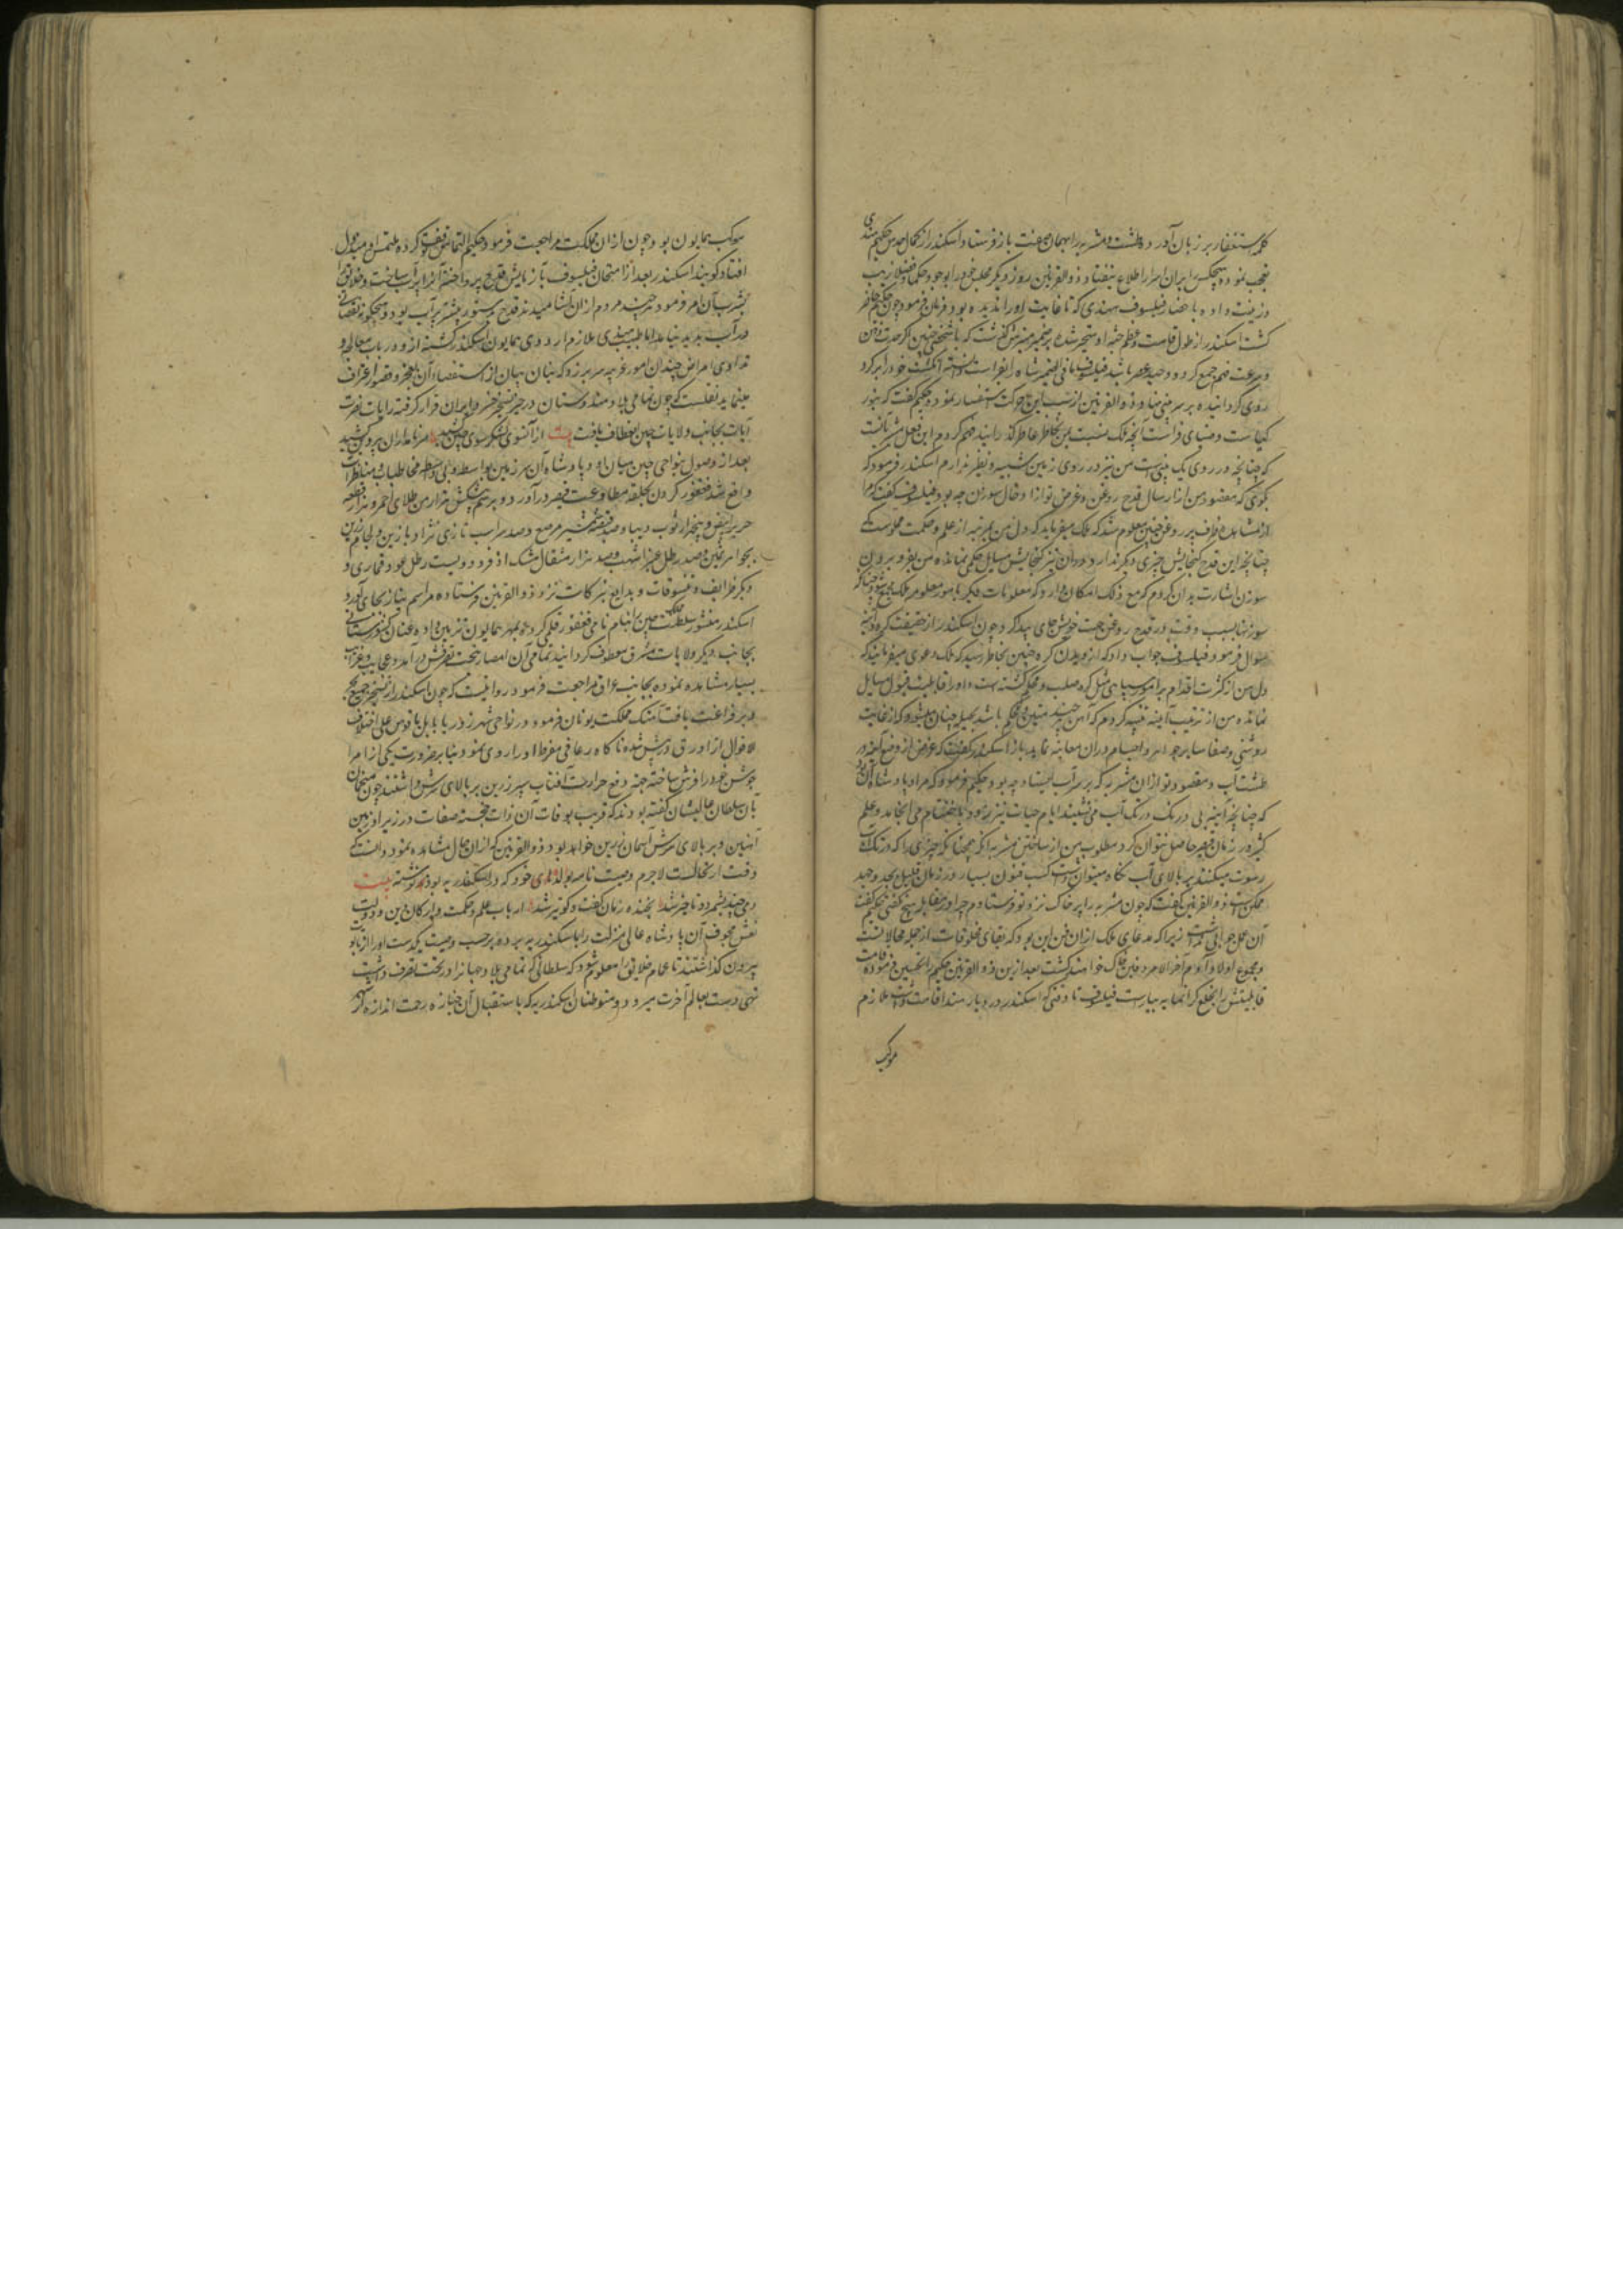 کلمه استغفار بر زبان آورد و طشت و مشربه را بهمان صنعت باز فرستاد و اسکندر از کمال حدس حکیم هندی
تعجب نموده هیچکس را بران اسرار اطلاع نیفتاد و ذوالقرنین روز دیگر مجلس خود را بوجود حکما و فضلا زیب
و زینت داده باحضار فیلسوف هندی که تا غایت او را ندیده بود فرمان فرمود چون حکیم حاضر
کشت اسکندر از طول قامت و عظم جثه او متحیر شده بر ضمیر منیرش گذشت که با شخصی چنین اکر حدت ذهن
و سرعت فهم جمع کردد وحید عصر باشد فیلسوف مافی الضمیر شاه را بفراست دانسته انکشت خود را بر کرد
روی کردانیده بر سر بینی نهاد و ذوالقرنین از سبب این حرکت استفسار نموده حکیم گفت که بنور
کیاست و ضیای فراست آنچه ملک نسبت بمن بخاطر عاطر گذرانید فهم کردم این فعل اشارتست
که چنانچه در روی یک بینی است من نیز در روی زمین شبیه و نظیر ندارم اسکندر فرمود که
بگوی که مقصود من از ارسال قدح روغن و غرض تو از ادخال سوزن چه بود فیلسوف گفت که مرا
از مشاهده ظرف پر روغن چنین معلوم شد که ملک میفرماید که دل من بمرتبه از علم و حکمت مملوست که
چنانچه این قدح کنجایش چیزی دیکر ندارد در آن نیز کنجایش مسایل حکمی نمانده من بفرو بردن
سوزن اشارت بدان کردم که مع ذلک امکان دارد که معلومات دیکر با مور معلومه ملک جمع شود چنانکه
سوزنها بسبب دقت در قدح روغن جهت خویش جای پیدا کرد و چون اسکندر از حقیقت کره و آینه
سوال فرمود فیلسوف جواب داد که از دیدن کره چنین بخاطر رسید که ملک دعوی میفرماید که
دل من از کثرت اقدام بر امور سیاسی مثل کره صلب و محکم کشته است و او را قابلیت قبول مسایل
نمانده من از ترتیب آینه تنبیه کردم که آهن هر چند متین و محکم باشد بحیله چنان میشود که از غایت
روشنی و صفا سایر جواهر و اجسام در آن معاینه نماید باز اسکندر گفت که غرض از وضع آینه در
طشت آب و مقصود تو از آن مشربه که بر سر آب ایستاد چه بود حکیم فرمود که مراد پادشاه آن بود
که چنانچه آینه بی درنک در تک آب می نشیند ایام حیات نیز زود باختتام می انجامد و علم
کثیر در زمان قصیر حاصل نتوان کرد مطلوب من از ساختن مشربه آنکه همچنانکه چیزی را که در تک آب
رسوب میکند بر بالای آب نکاه میتوان داشت کسب فنون بسیار در زمان قلیل بجد و جهد
ممکن است ذوالقرنین گفت که چون مشربه را پر خاک نزد تو فرستادم چرا در مقابل هیچ نکفتی حکیم گفت
آن محل جوابی نداشت زیرا که مدعای ملک از آن فن این بود که بقای مخلوقات از جمله محالاتست
و مجموع اولاد آدم آخر الامر دفین خاک خواهند کشت بعد ازین ذوالقرنین حکیم را تحسین فرموده قامت
قابلیتش را بخلع کرانمایه بیاراست فیلسوف تا وقتی که اسکندر در دیار هند اقامت داشت ملازم
موکب
موکب همایون بود چون از آن مملکت مراجعت فرمود حکیم التماس توقف کرده ملتمس او مبذول
افتاد و کویند اسکندر بعد از امتحان فیلسوف بآزمایش قدح پرداخته آنرا پر آب ساخت و خلایق را
بشرب آن امر فرمود هر چند مردم از آن آشامیدند قدح بدستور پیشتر پر آب بود و هیچگونه نقصانی
در آب پدید نیامد اما طبیب هندی ملازم اردوی همایون اسکندر کشته از و در باب معالجه و
تداوی امراض چندان امور غریبه سر بر زد که بنان بیان از استقصاء آن بعجز و قصور اعتراف
مینماید نقلست که چون تمامی بلاد هندوستان در حیز تسخیر خسرو ایران قرار کرفت رایات نصرت
آیات بجانب ولایات چین انعطاف یافت بیت از آنسوی لشکر سوی چین کشید سر نامداران بپروین کشید
بعد از وصول بنواحی چین میان او و پادشاه آن سرزمین بواسطه و بی واسطه مخاطبات و مناظرات
واقع شد فغفور کردن بحلقه مطاوعت قیصر درآورد و برسم پیشکش هزار من طلای احمر و هزار قطعه
حریر ابیض و پنج هزار ثوب دیبا و صد قبضه شمشیر مرصع و صد سر اسب تازی نژاد با زین و لجام مزین
بجواهر ثمین و صد رطل عنبر اشهب و صد هزار مثقال مشک اذفر و دویست رطل عود قماری و
دیکر ظرایف و تنسوقات و بدایع تبرکات نزد ذوالقرنین فرستاده مراسم نیاز بجای آورد
اسکندر منشور سلطنت مملکت چین را بنام نامی فغفور قلمی کرده و بمهر همایون تزیین داده عنان کشورستانی
بجانب دیکر ولایات مشرق معطوف کردانید تمامی آن امصار تحت تصرفش درآمد و عجایب و غرایب
بسیار مشاهده نموده بجانب عراق مراجعت فرمود روایتست که چون اسکندر از تسخیر جمیع بحر
و بر فراغت یافت آهنک مملکت یونان فرمود و در نواحی شهر زور یا بابل یا قومس علی اختلاف
الاقوال از اورق درپیش شده ناکاه رعافی مفرط او را روی نمود بنا بر ضرورت یکی از امرا
جوشن خود را فرش ساخته جهت دفع حرارت آفتاب سپر زرین بر بالای سرش داشتند چون منجمان
بآن سلطان عالیشان گفته بودند که قریب بوفات آن ذات خجسته صفات در زیر او زمین
آهنین و بر بالای سرش آسمان زرین خواهد بود ذوالقرنین که از آن حال مشاهده نمود دانست که
وقت ارتحالست لاجرم وصیت نامه بوالده خود که در اسکندریه بود نوشته بیت
دمی چند بشمرد و ناچیز شد بخنده زمان گفت کو نیز شد ارباب علم و حکمت و ارکان دین و دولت
نعش محفوف آن پادشاه عالی منزلت را باسکندریه برده بر حسب وصیت یکدست او را از تابوت
بیرون کذاشتند تا عام خلایق را معلوم شود که سلطانی که تمامی بلاد جهانرا در تحت تصرف داشت
تهی دست بعالم آخرت میرود و متوطنان اسکندریه که باستقبال آن جنازه رحمت اندازه